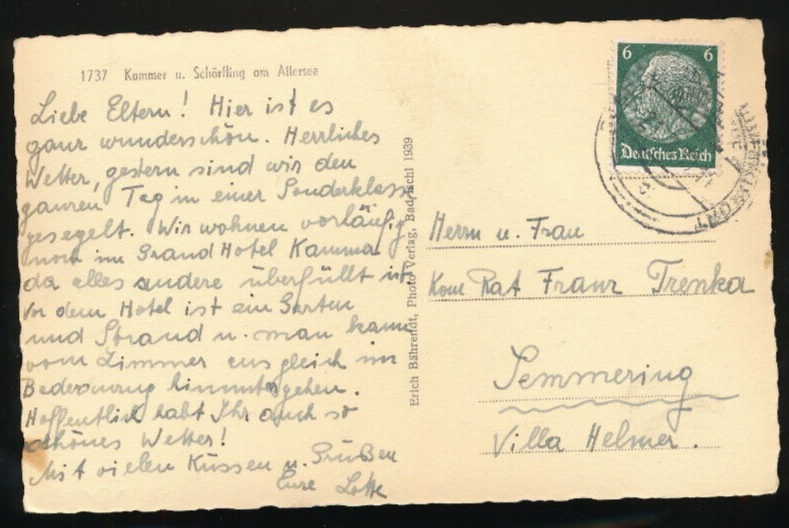 1737 Kammer u. Schörfling am Attersee
Liebe Eltern! Hier ist es
ganz wunderschön. Herrliches
Wetter, gestern sind wir den
ganzen Tag in einer Sonderklasse
gesegelt. Wir wohnen vorläufig
noch im Grand Hotel Kammer
da alles andere überfüllt ist.
Vor dem Hotel ist ein Garten
und Strand u. man kann
vom Zimmer aus gleich im
Badeanzug hinuntergehen.
Hoffentlich habt Ihr auch so
schönes Wetter!
Mit vielen Küssen u. Grüßen
Eure Lotte
Erich Bährendt, Photo-Verlag, Bad Ischl 1939
6 6
Deutsches Reich
Herrn u. Frau
Kom Rat Franz Trenka
Semmering
Villa Helmer.